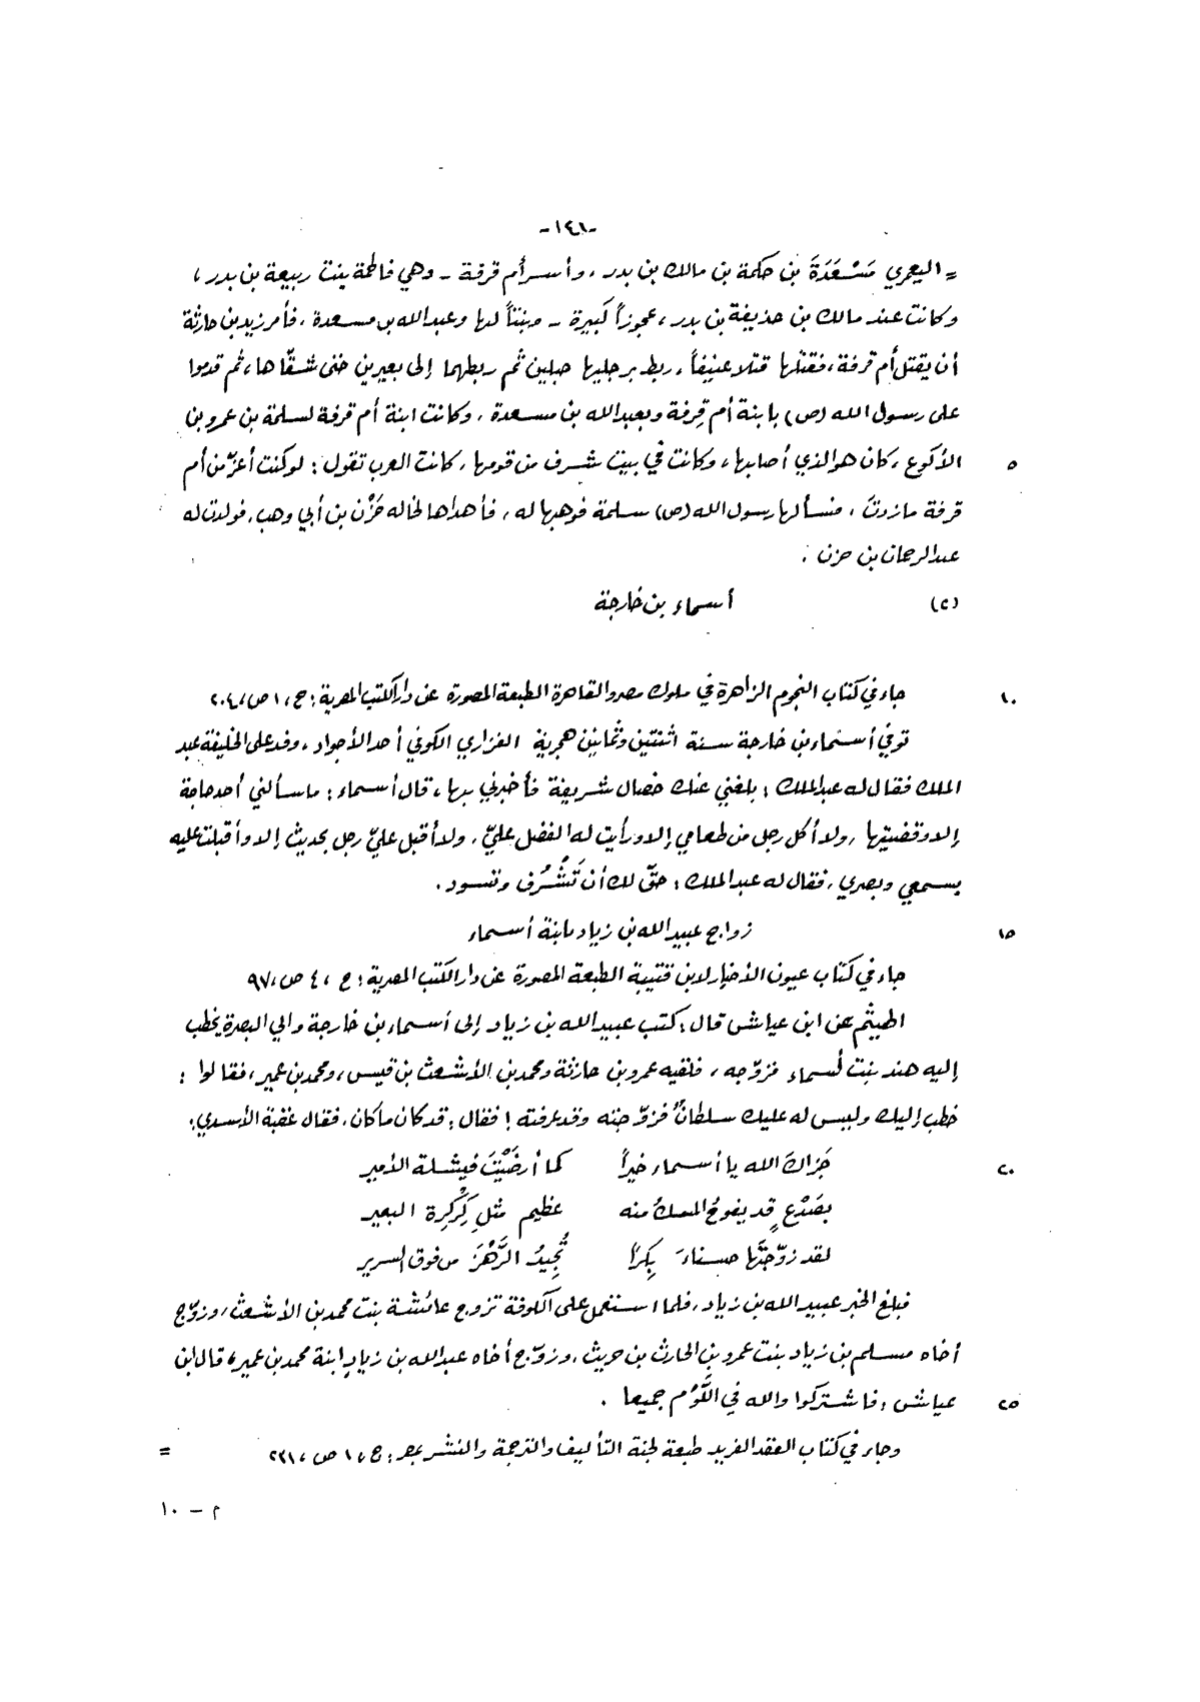 -١٤١-
= اليعمري مَسْعَدَةَ بن حكمة بن مالك بن بدر، وأسر أم قرفة - وهي فاطمة بنت ربيعة بن بدر،
وكانت عند مالك بن حذيفة بن بدر، عجوزاً كبيرة - وبنتاً لها وعبدالله بن مسعدة، فأمر زيد بن حارثة
أن يقتل أم قرفة، فقتلها قتلا عنيفاً، ربط برجليها حبلين ثم ربطهما إلى بعيرين حتى شقّاها، ثم قدموا
على رسول الله (ص) بابنة أم قرفة وبعبدالله بن مسعدة، وكانت ابنة أم قرفة لسلمة بن عمرو بن
٥ الأكوع، كان هو الذي أصابها، وكانت في بيت شرف من قومها، كانت العرب تقول: لو كنت أعزّ من أم
قرفة مازدتَ، فسألها رسول الله (ص) سلمة فوهبها له، فأهداها لخاله حَزْن بن أبي وهب، فولدت له
عبدالرحمان بن حزن.
(٢) أسماء بن خارجة
١٠ جاء في كتاب النجوم الزاهرة في ملوك مصر والقاهرة الطبعة المصورة عن دار الكتب المصرية: ج، ١ ص، ٢٠٤
توفي أسماء بن خارجة سنة اثنتين وثمانين هجرية الفزاري الكوفي أحد الأجواد، وفد على الخليفة عبد
الملك فقال له عبدالملك: بلغني عنك خصال شريفة فأخبرني بها، قال أسماء: ماسألني أحد حاجة
إلا وقضيتها، ولا أكل رجل من طعامي إلا ورأيت له الفضل عليّ، ولا أقبل عليّ رجل بحديث إلا وأقبلت عليه
بسمعي وبصري، فقال له عبدالملك: حقّ لك أن تَشْرُف وتسود.
١٥ زواج عبيدالله بن زياد بابنة أسماء
جاء في كتاب عيون الأخبار لابن قتيبة الطبعة المصورة عن دار الكتب المصرية: ج، ٤ ص، ٩٧
الهيثم عن ابن عياش قال: كتب عبيدالله بن زياد إلى أسماء بن خارجة والي البصرة يخطب
إليه هند بنت أسماء فزوّجه، فلقيه عمرو بن حارثة ومحمد بن الأشعث بن قيس، ومحمد بن عمير، فقالوا:
خطب إليك وليس له عليك سلطانٌ فزوّجته وقد عرفته! فقال: قد كان ما كان، فقال عقبة الأسدي:
٢٠ جَزاكَ الله يا أسماء خيراً كما أرضَيْتَ فيشلة الأمير
بصَدْعٍ قد يفوحُ المسكُ منه عظيم مثلِ كِرْكِرة البعير
لقد زوّجتَها حسناءَ بِكراً تُجِيدُ الرَّهْزَ من فوق السرير
فبلغ الخبر عبيدالله بن زياد، فلما استعمل على الكوفة تزوج عائشة بنت محمد بن الأشعث، وزوّج
أخاه مسلم بن زياد بنت عمرو بن الحارث بن حريث، وزوّج أخاه عبدالله بن زيادٍ ابنة محمد بن عمير، قال ابن
٢٥ عياش: فاشتركوا والله في اللَّوْم جميعا.
وجاء في كتاب العقد الفريد طبعة لجنة التأليف والترجمة والنشر بمصر: ج، ١ ص، ٢٣١ =
م - ١٠